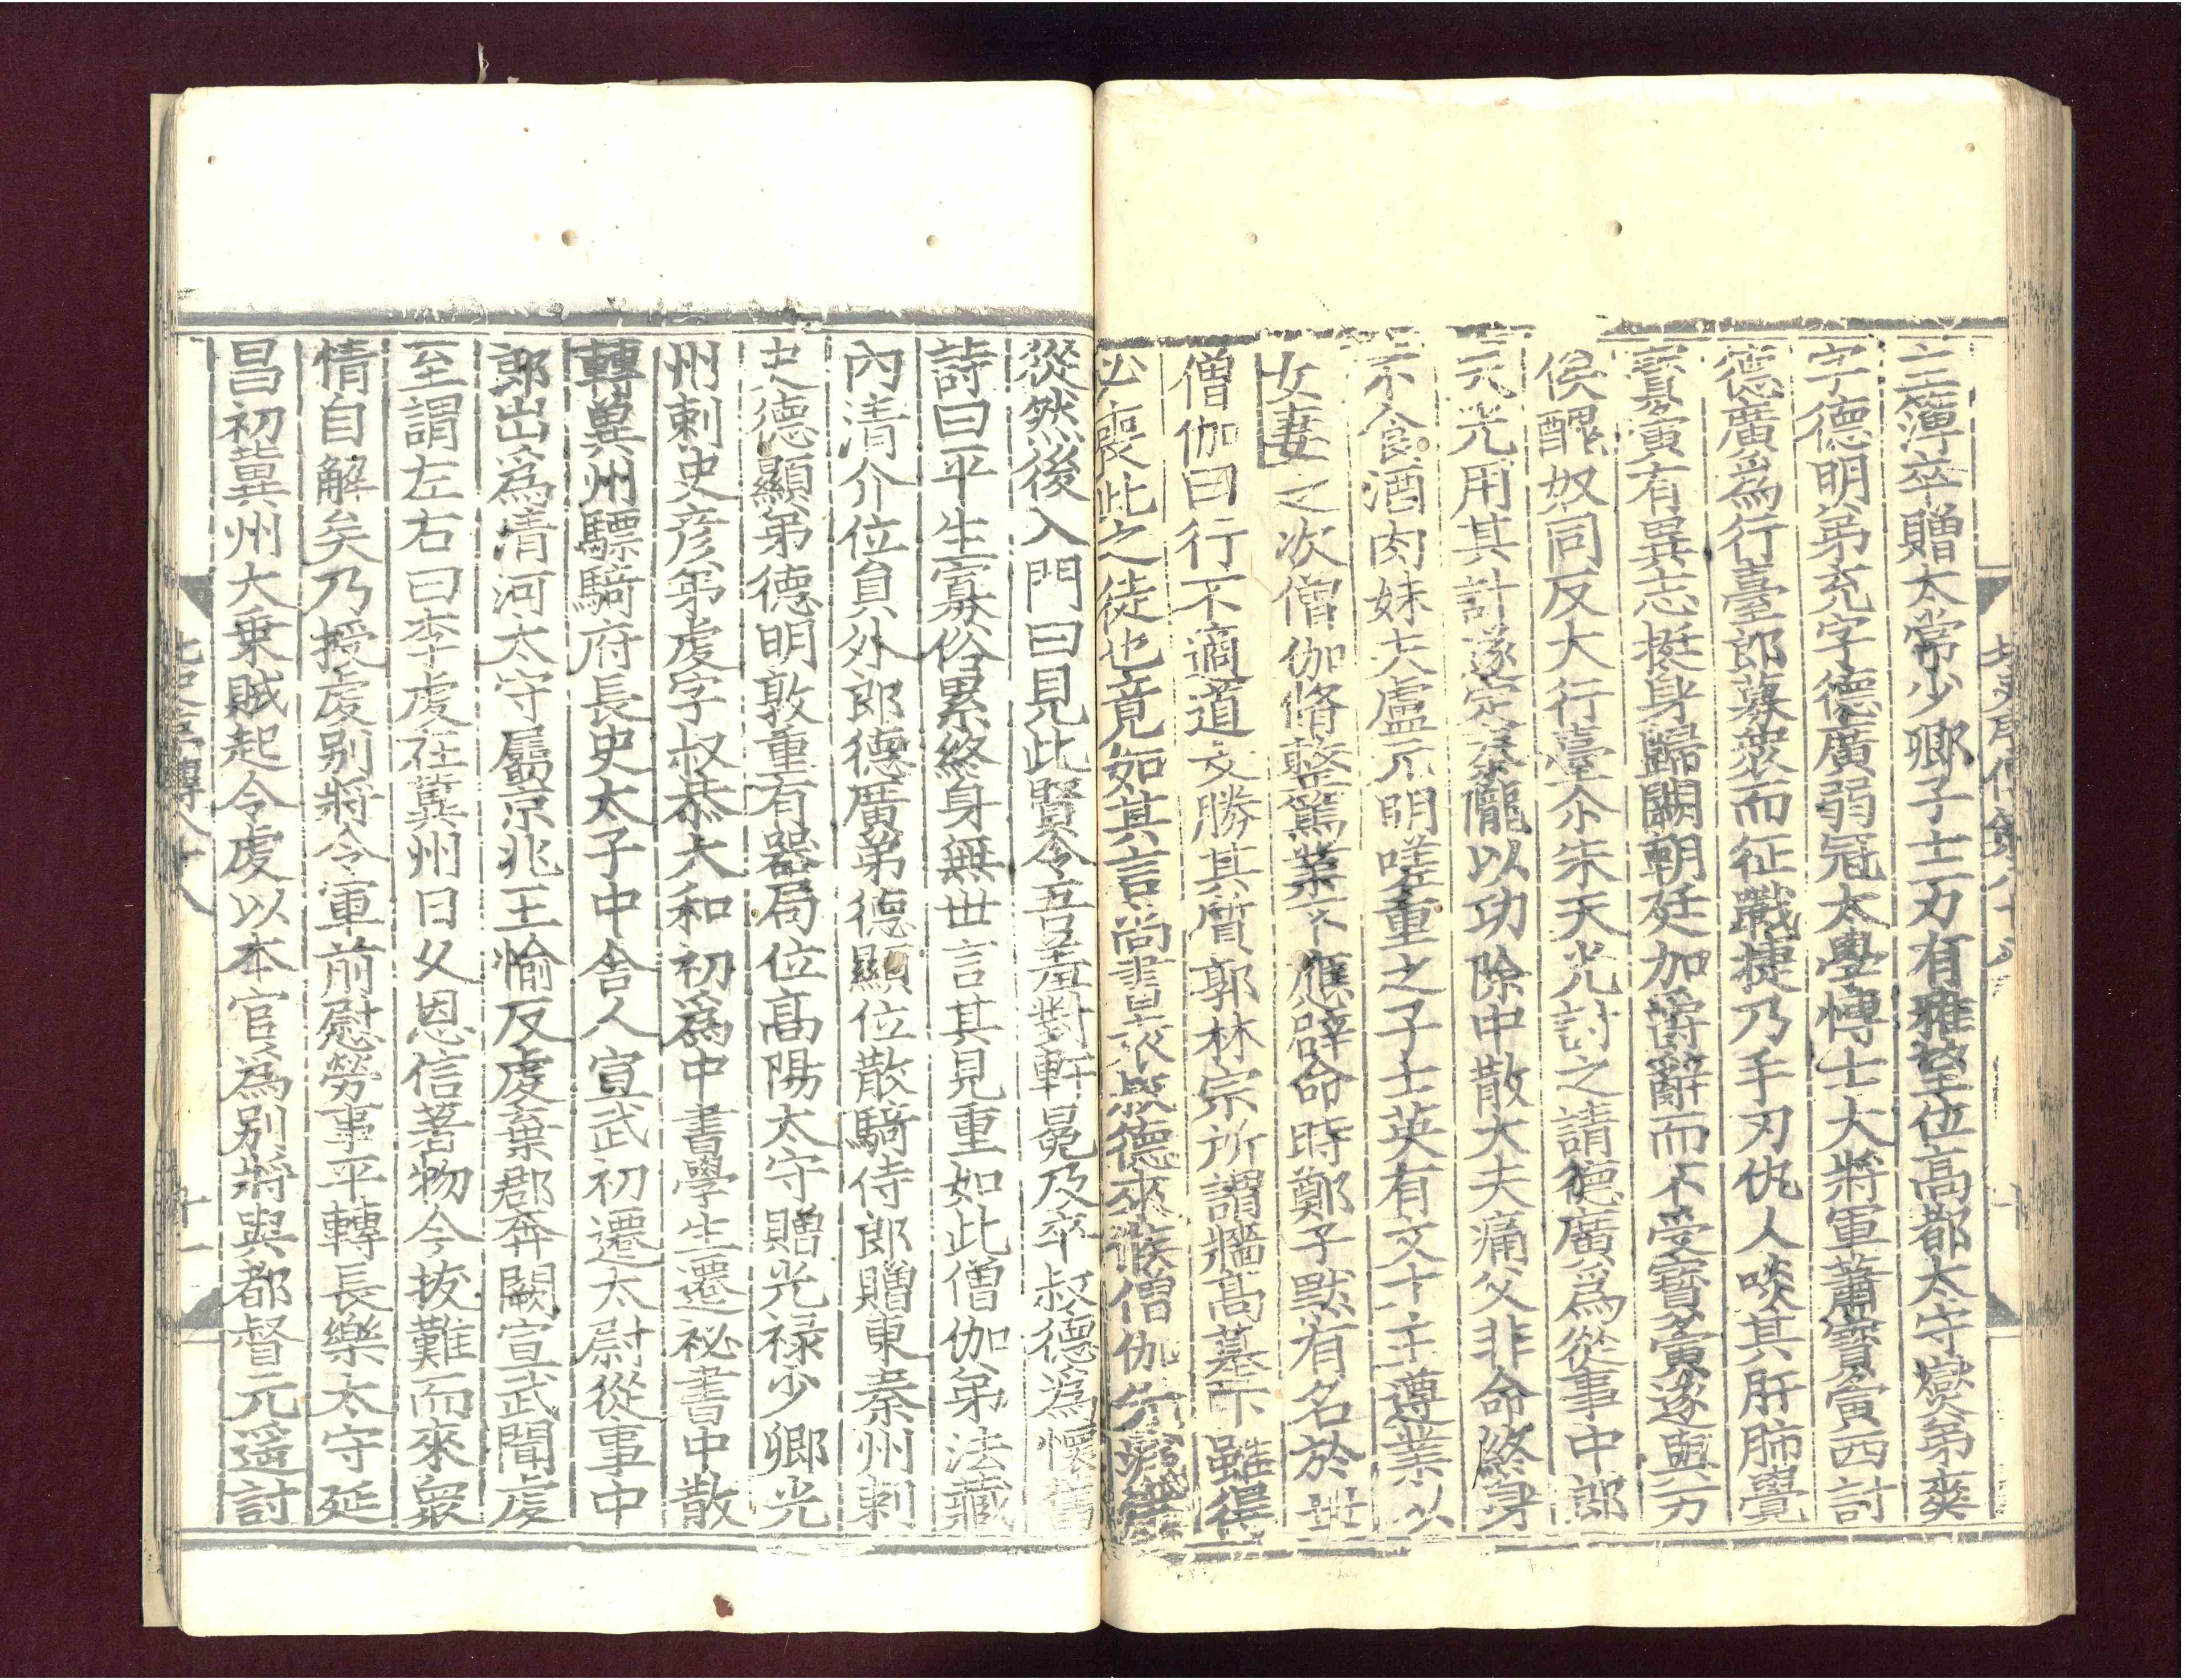 主簿卒贈太常少卿子士万有雅望位高都太守爕弟爽
字德明弟充字德廣弱冠太學博士大將軍蕭寶寅西討
德廣爲行臺郎募衆而征戰捷乃手刃仇人啖其肝肺覺
寳寅有異志挺身歸闕朝廷加爵辭而不受寳寅遂與万
俟醜奴同反大行臺尒朱天光討之請德廣爲從事中郎
天光用其計遂定秦隴以功除中散大夫痛父非命終身
不食酒肉妹夫盧元明嗟重之子士英有文才士遵業以
女妻之次僧伽脩整篤業不應辟命時鄭子默有名於世
僧伽曰行不適道文勝其質郭林宗所謂牆高基下雖得
必喪此之徒也竟如其言尚書袁叔德來候僧伽先減僕
從然後入門曰見此賢令吾羞對軒冕及卒叔德爲懷舊
詩曰平生寡俗累終身無世言其見重如此僧伽弟法藏
內清介位貟外郎德廣弟德顯位散騎侍郎贈東秦州刺
史德顯弟德明敦重有器局位高陽太守贈光禄少卿光
州刺史彦弟虔字叔恭太和初爲中書學生遷祕書中散
轉兾州驃騎府長史太子中舎人宣武初遷太尉從事中
郎出爲清河太守屬京兆王愉反虔棄郡奔闕宣武聞虔
至謂左右曰李虔在兾州日久恩信著物今拔難而來衆
情自解矣乃授虔别將令軍前慰勞事平轉長樂太守延
昌初兾州大乗賊起令虔以本官爲别將與都督元遥討
北史列傳八十八
十一